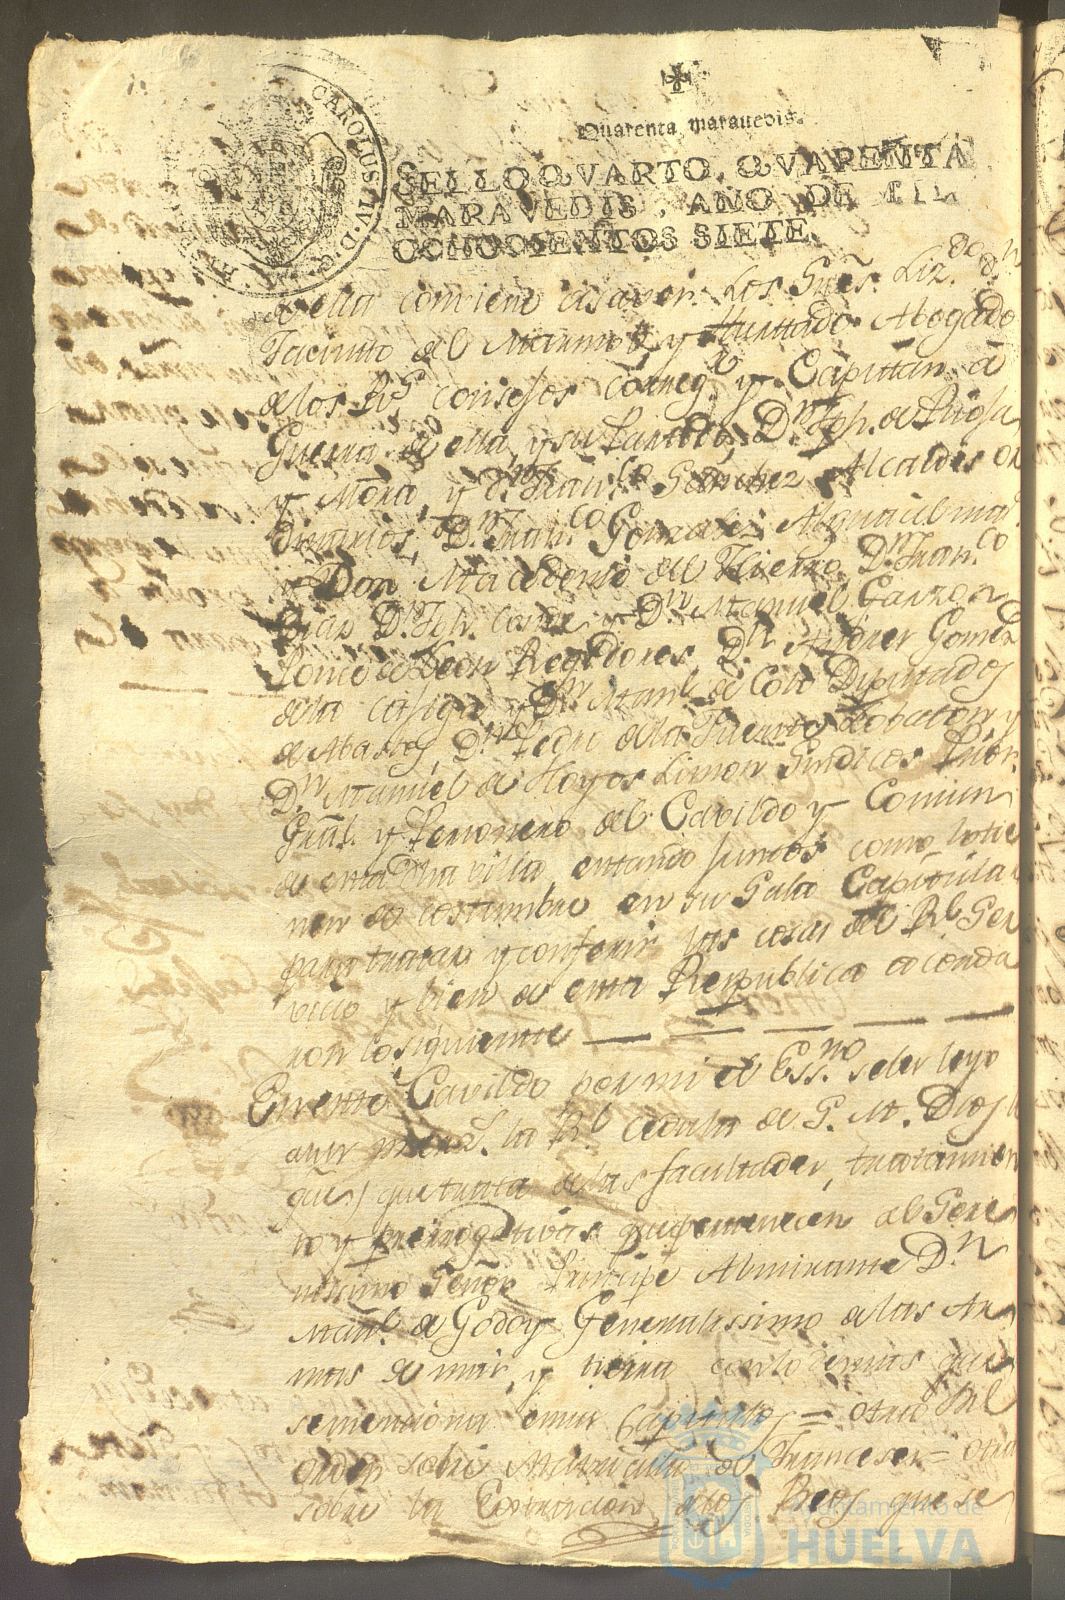 CAROLUS IV. D. G.
Quarenta marauedis.
SELLO QVARTO, QVARENTA
MARAVEDIS, AÑO DE MIL
OCHOCIENTOS SIETE.
de ella conviene a saver: Los Sres. Liz.do Dn
Jacinto del Marmol y Hurtado Abogado
de los Rs Consejos Correg.r y Capitan a
Guerra de ella, y su Partido, Dn Jph. de Rioja
y Mora, y Dn Fran.co Sanchez Alcaldes or
dinarios, Dn Juan Gonzalez Alguacil mar
Don Macedonio del Hierro, Dn Fran.co
Diaz Dn Jph. y Dn Manuel Garzon
Ponce de Leon Regidores, Dn Gomez
de la y Dn Man.l de Coto Diputados
de Abastos, Dn Pedro de la Puente Lobaton y
Dn Manuel de Hoyos Limon Sindicos Prôr.
Grāl. y Personero del Cavildo y Comun
de esta dha villa, estando juntos como lo tie
nen de costumbre en su Sala Capitular
para tratar y conferir las cosas del Rl Ser
vicio y bien de esta Republica acorda
ron lo siguiente
En este Cavildo por mi el Ess.no se les leyo
a sus mrds. la Rl cedula de S. M. Dios l
gūe) que trata de las facultades, tratamien
to y prerrogativas que pertenecen al Sere
nissimo Señor Principe Almirante Dn
Man.l de Godoy Generalissimo de las Ar
mas de mar, y tierra con lo demas que
se menciona en sus Capitulos = otra Rl
orden sobre Matricula de Franceses = otra
sobre la de los Reos que se
Ayuntamiento de
HUELVA